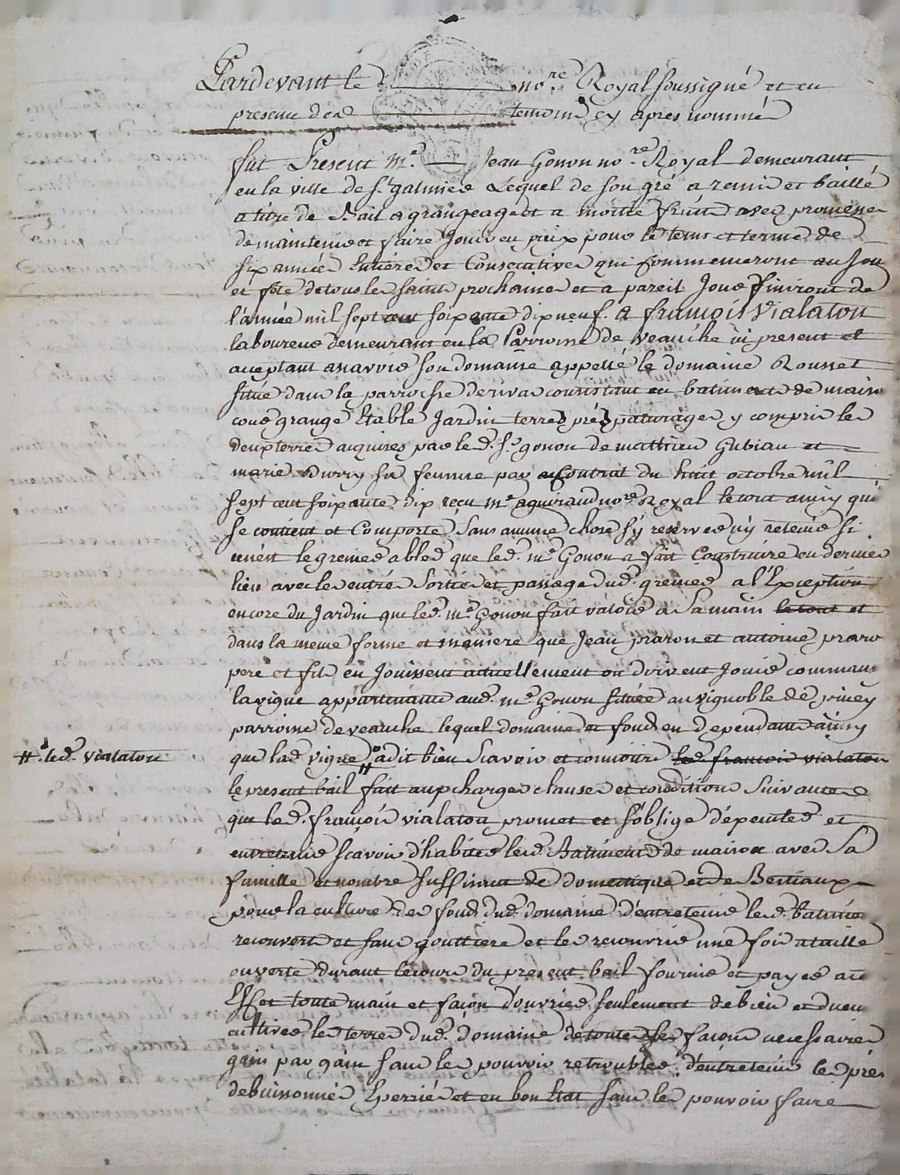 Pardevant le no.re Royal soussigné et en
presence des temoins cy apres nommé
fut Present m.e Jean Gonon no.re Royal demeurant
en la ville de s.t galmier Lequel de son gré a remi et baillé
a titre de Bail a grangeage et a moitié fruit avec promesse
de maintenir et faire Jouir en paix pour le tems et terme de
six année Entiere et Consecutive qui commenceront au Jour
et fete de tous les saints prochaine et a pareil Jour finiront de
l'année mil sept cent soixante dix neuf. A françois Vialaton
laboureur demeurant en la Parroisse de veauche ici present et
acceptant asavoir son domaine appellé le domaine Rousset
situé dans la parroisse de rivas consistant en batiment de maison
cour grange Etable Jardin terres prés paturage y compris les
deux terres acquises par le d. s.r gonon de mathieu Gubian et
marie Durry sa femme par Contrat du huit octobre mil
sept cent soixante dix recu m.e no.re Royal le tout ainsy qu'il
se contient et Comporte Sans aucune chose s'y reserver n'y retenir si
cenest le grenier a bled que led. m.e Gonon a fait Construire en dernier
lieu avec les entrée Sortie et passage dud. grenier a l'Exception
encore du Jardin que led. m.e Gonon fait valoir a Sa main le tout et
dans la même forme et maniere que Jean praron et antoine praron
pere et fils en Jouissent actuellement ou doivent Jouir comm'aussi
la vigne appartenante aud. m.e Gonon Située au vignoble de
parroisse de veauche lequel domaine et fond en dependant ainsy
que lad. vigne a dit bien Scavoir et connoitre led. francois vialaton
# led. vialaton
le present bail fait aux charge clause et condition Suivante
que led. françois vialaton promet et s'oblige d'exécuter et
entretenir scavoir d'habiter les d. Batiment de maison avec Sa
famille et nombre Suffisant de domestique et de Bestiaux
pour la culture des fond dud. domaine d'entretenir led. batiment
recouvert et sans gouttiere et les recouvrir une fois a taille
ouverte durant le cours du present bail fournir et payer au
Effet toute main et facon d'ouvrier seulement de bien et duement
cultiver les terres dud. domaine de toutes les facons necessaires
gain par gain sans les pouvoir retroubler. d'entretenir les prés
debuissonné Eperrié et en bon Etat sans les pouvoir faire